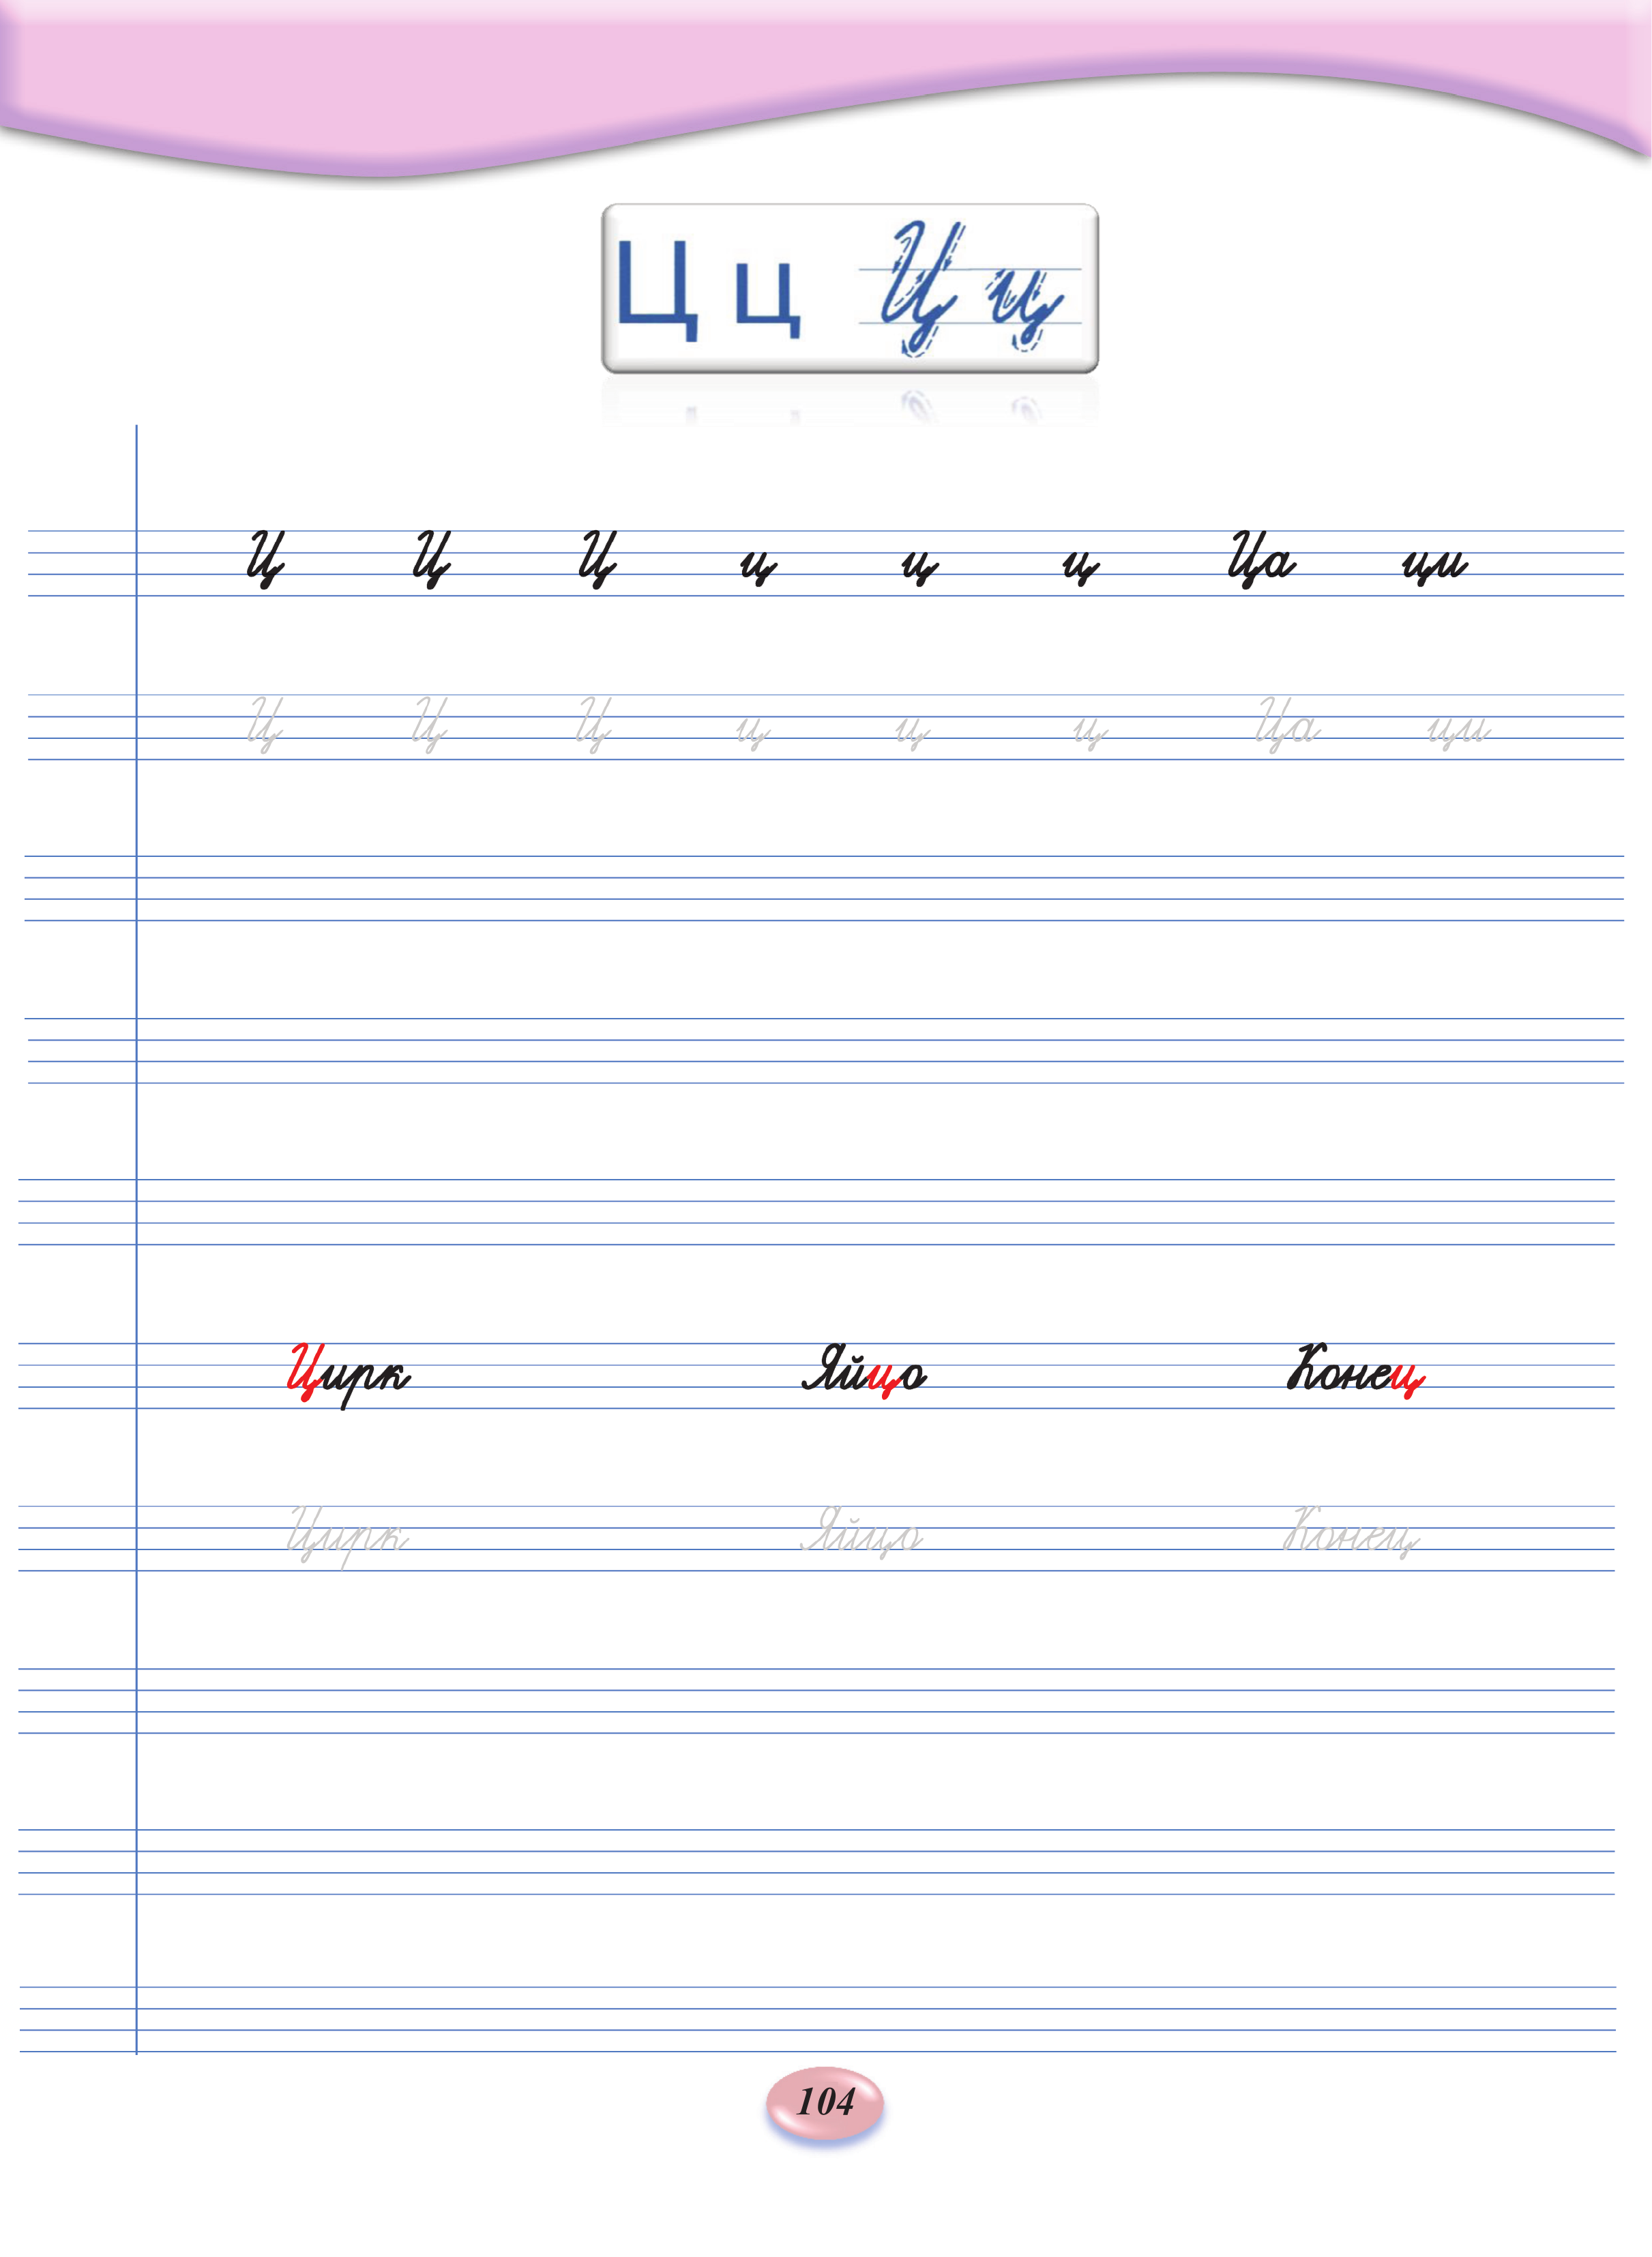 Ц ц Ц ц
Ц Ц Ц ц ц ц Ца ци
Ц Ц Ц ц ц ц Ца ци
Цирк Яйцо Конец
Цирк Яйцо Конец
104